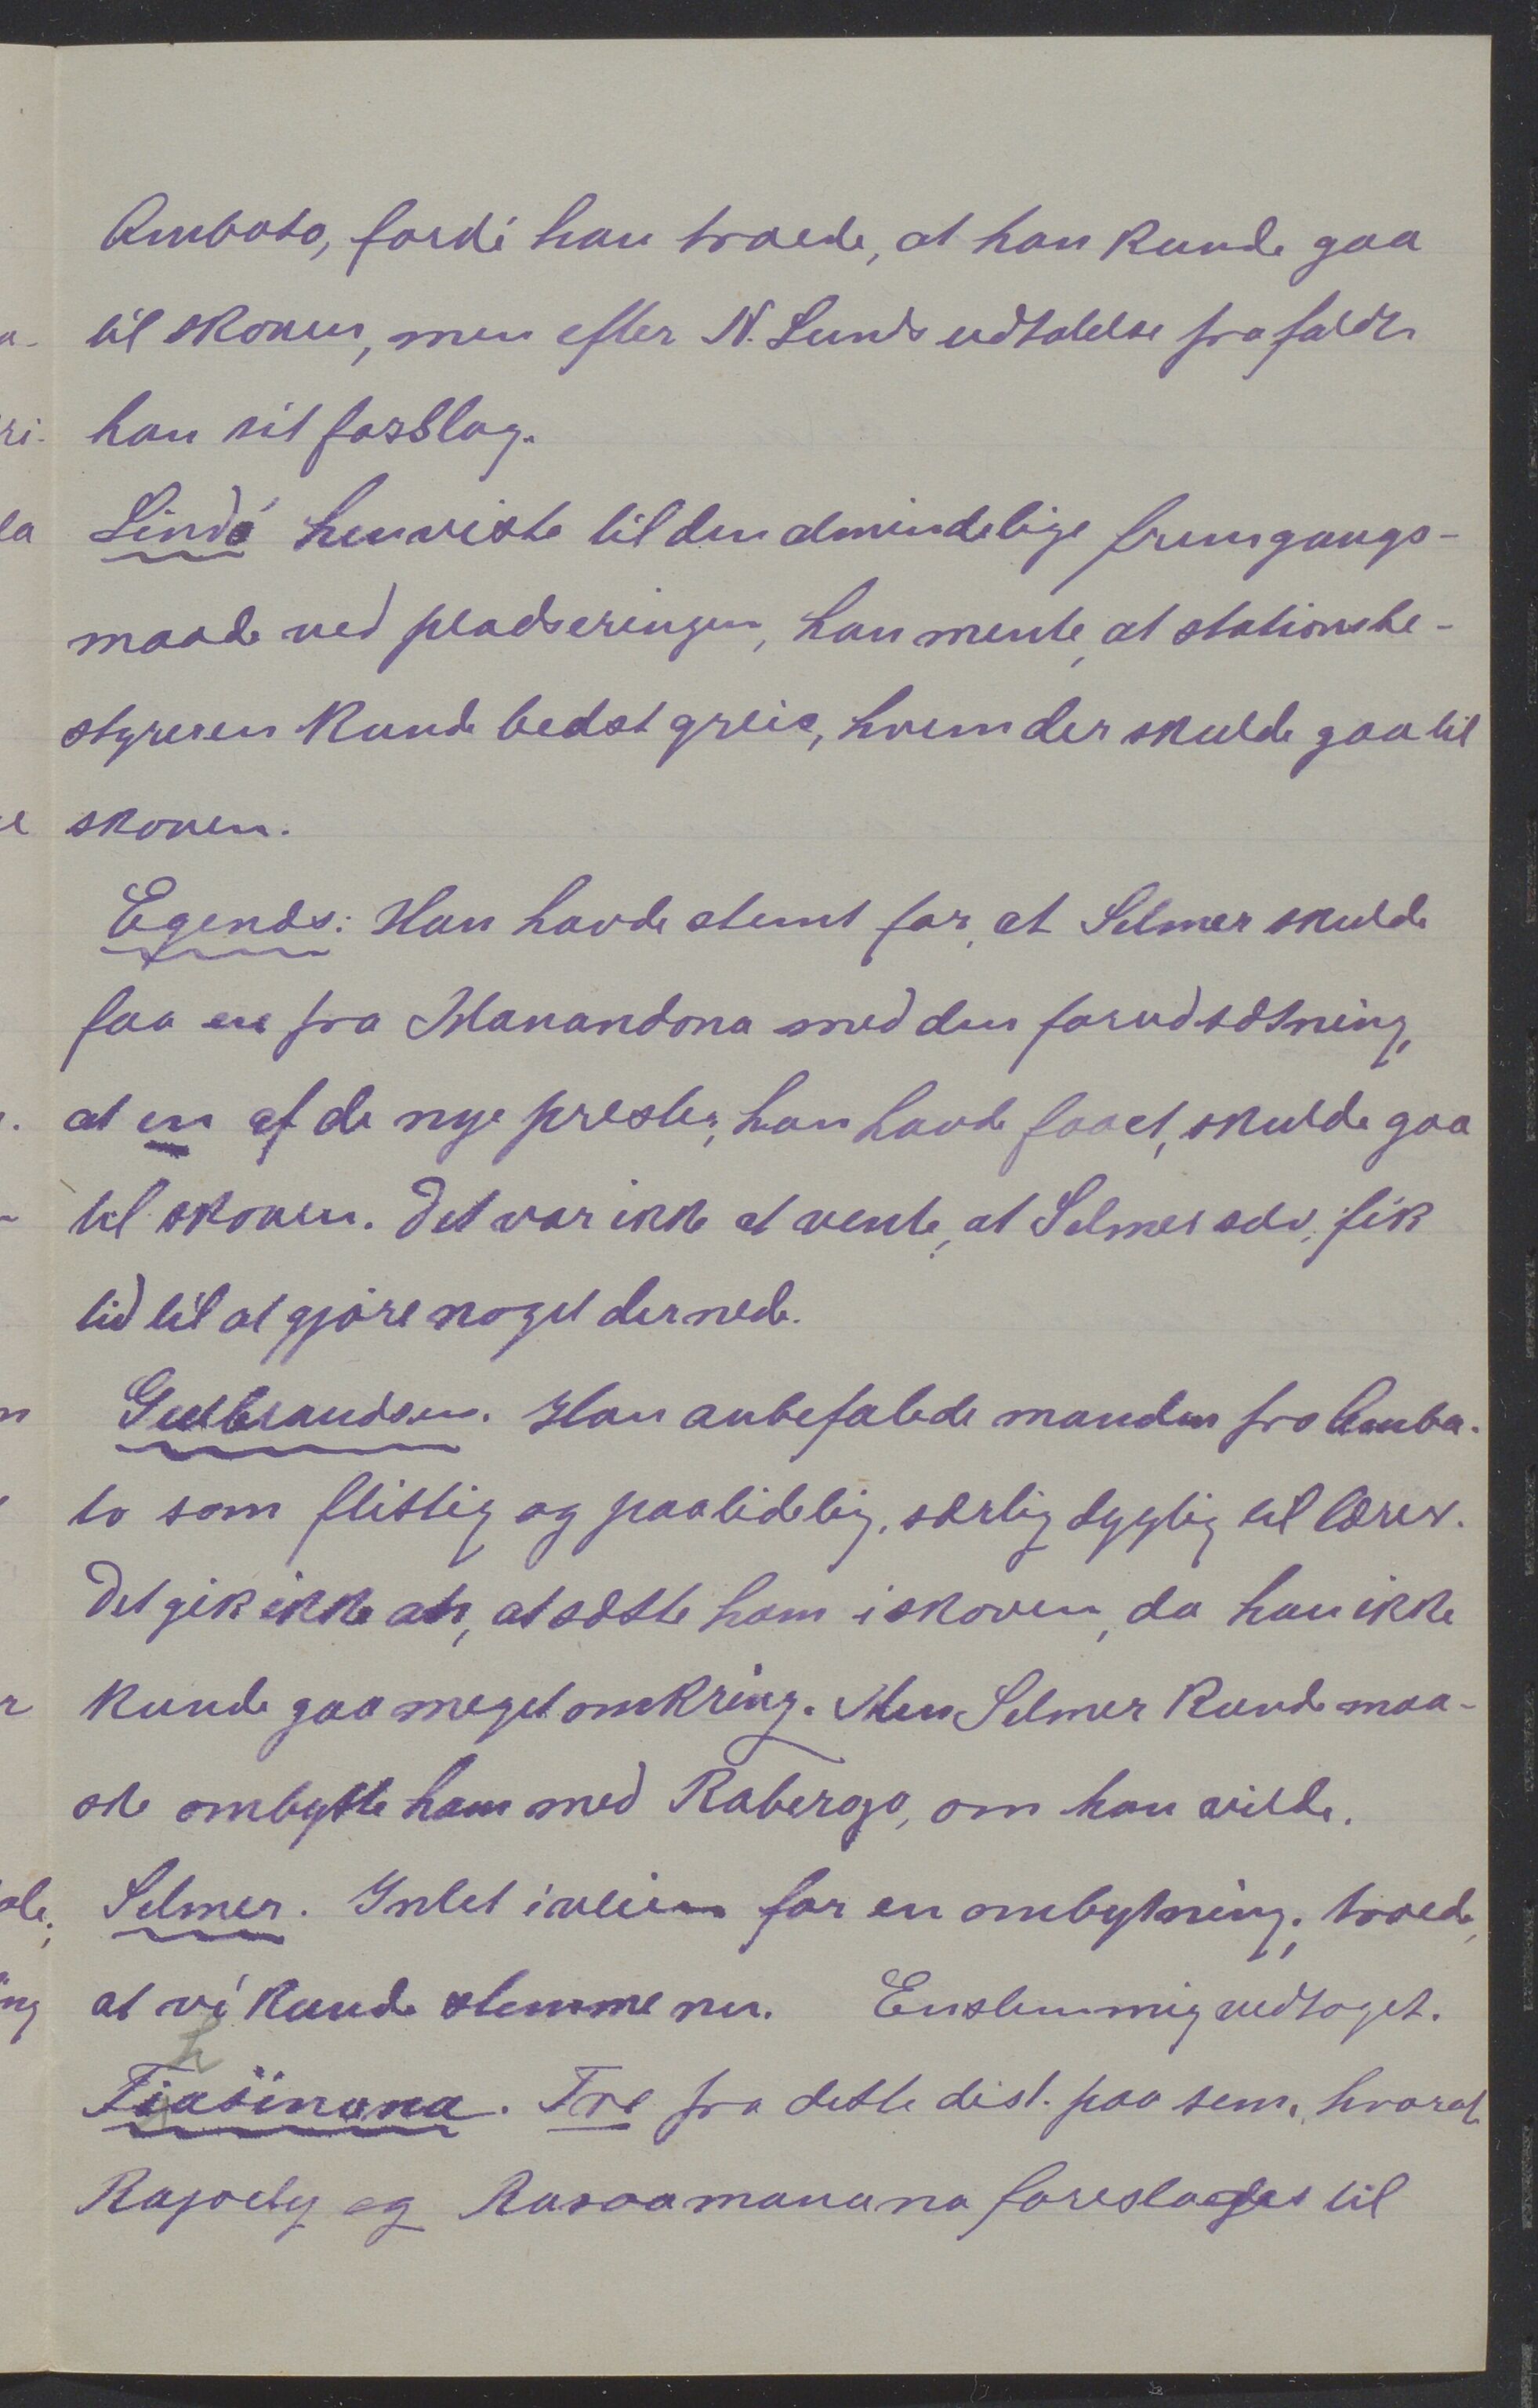 Ambato, fordi han troede, at han kunde gaa
til skoven, men efter N. Lunds udtalelse frafaldt
han sit forslag.
Lindö henviste til den almindelige fremgangs-
maade ved pladseringen, han mente, at stationsbe-
styreren kunde bedst greie, hvem der skulde gaa til
skoven.
Egenæs: Han havde stemt for, at Selmer skulde
faa en fra Manandona med den forudsætning,
at en af de nye prester, han havde faaet, skulde gaa
til skoven. Det var ikke at vente, at Selmer selv fik
tid til at gjöre noget dernede.
Gulbrandsen. Han anbefalede manden fra Amba-
to som flittig og paalidelig, særlig dygtig til lærer.
Det gik ikke an, at sætte ham i skoven, da han ikke
kunde gaa meget omkring. Men Selmer kunde maa-
ske ombytte ham med Rabergo, om han vilde.
Selmer. Intet iveien for en ombytning; troede,
at vi kunde stemme nu. Enstemmig vedtaget.
Fihasinana. Tre fra dette dist. paa sem., hvoraf
Rajoely og Rasoamanana foreslaaes til